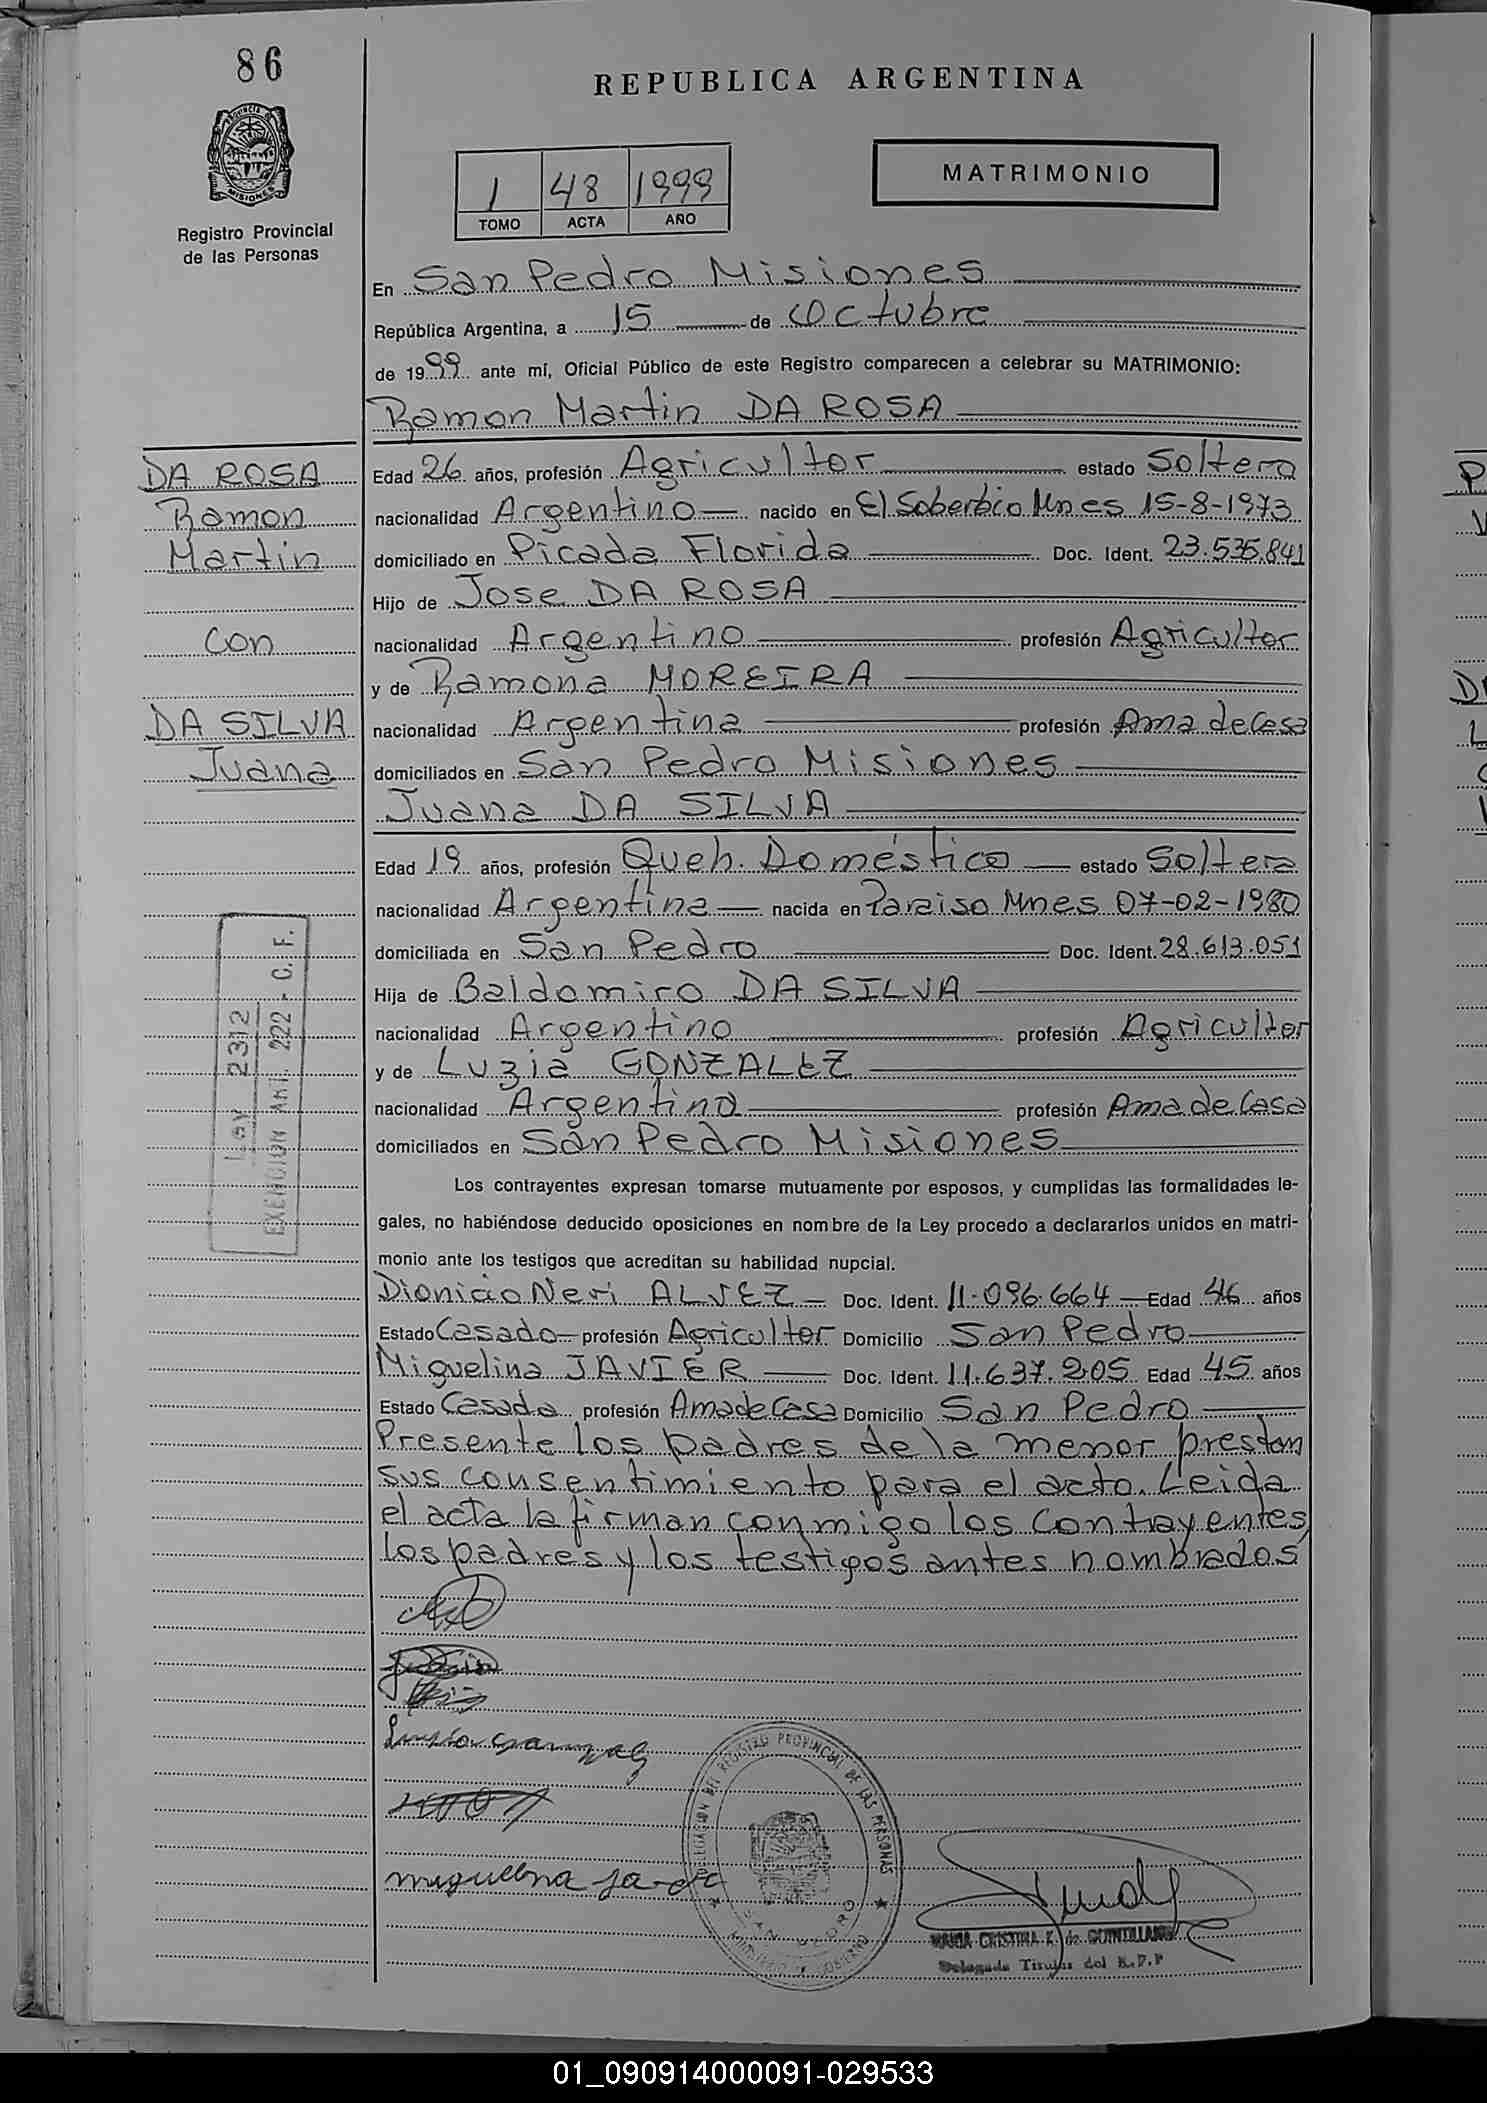 86
REPUBLICA ARGENTINA
PROVINCIA DE
MISIONES
Registro Provincial
de las Personas
1 48 1999
TOMO ACTA AÑO
MATRIMONIO
En San Pedro Misiones
República Argentina, a 15 de Octubre
de 1999 ante mí, Oficial Público de este Registro comparecen a celebrar su MATRIMONIO:
Ramon Martin DA ROSA
DA ROSA
Ramon
Martin
con
DA SILVA
Juana
Edad 26 años, profesión Agricultor estado Soltero
nacionalidad Argentino nacido en El Soberbio Mnes 15-8-1973
domiciliado en Picada Florida Doc. Ident. 23.535.841
Hijo de Jose DA ROSA
nacionalidad Argentino profesión Agricultor
y de Ramona MOREIRA
nacionalidad Argentina profesión Ama de Casa
domiciliados en San Pedro Misiones
Juana DA SILVA
Edad 19 años, profesión Queh. Doméstico estado Soltera
nacionalidad Argentina nacida en Paraiso Mnes 07-02-1980
domiciliada en San Pedro Doc. Ident. 28.613.051
Hija de Baldomiro DA SILVA
nacionalidad Argentino profesión Agricultor
y de Luzia GONZALEZ
nacionalidad Argentina profesión Ama de Casa
domiciliados en San Pedro Misiones
Ley 2312
EXENCION Art. 222 - C. F.
Los contrayentes expresan tomarse mutuamente por esposos, y cumplidas las formalidades le-
gales, no habiéndose deducido oposiciones en nombre de la Ley procedo a declararlos unidos en matri-
monio ante los testigos que acreditan su habilidad nupcial.
Dionicio Neri ALVEZ Doc. Ident. 11.096.664 Edad 46 años
Estado Casado profesión Agricultor Domicilio San Pedro
Miguelina JAVIER Doc. Ident. 11.637.205 Edad 45 años
Estado Casada profesión Ama de Casa Domicilio San Pedro
Presente los padres de la menor prestan
sus consentimiento para el acto. Leida
el acta la firman conmigo los contrayentes,
los padres y los testigos antes nombrados
DELEGACION DEL REGISTRO PROVINCIAL DE LAS PERSONAS
SAN PEDRO
MINISTERIO DE GOBIERNO
MARIA CRISTINA K. de QUINTILLAN
Delegada Titular del R.P.P
01_090914000091-029533